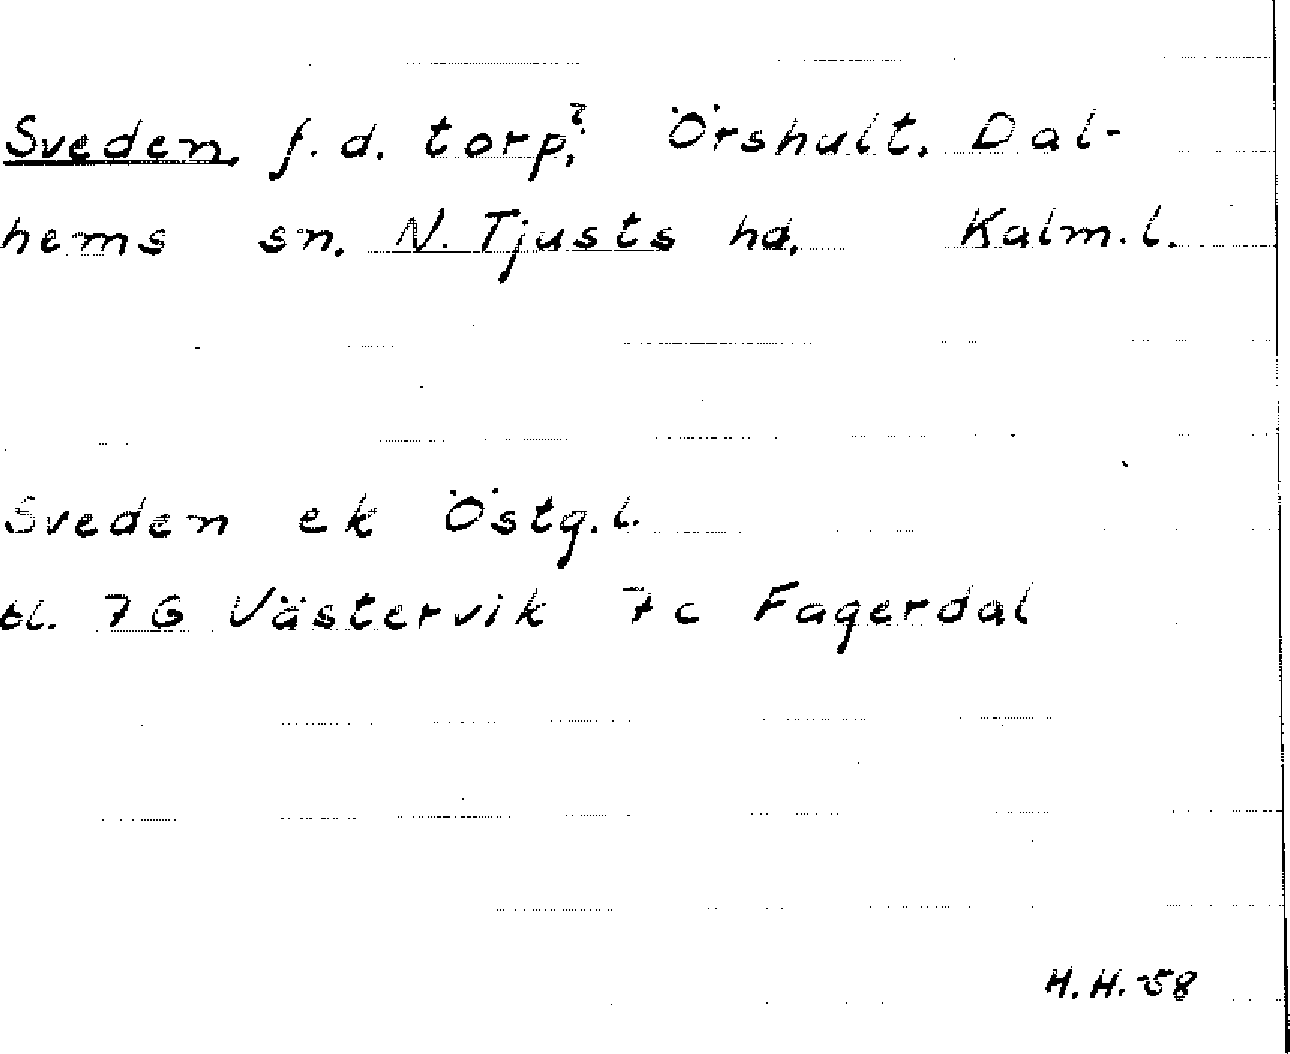 Sveden, f.d. torp, i Örshult. Dal-
hems sn. N. Tjusts hd. Kalm. l.
Sveden ek Östg. l.
bl. 7G Västervik 7c Fagerdal
H.H. -58